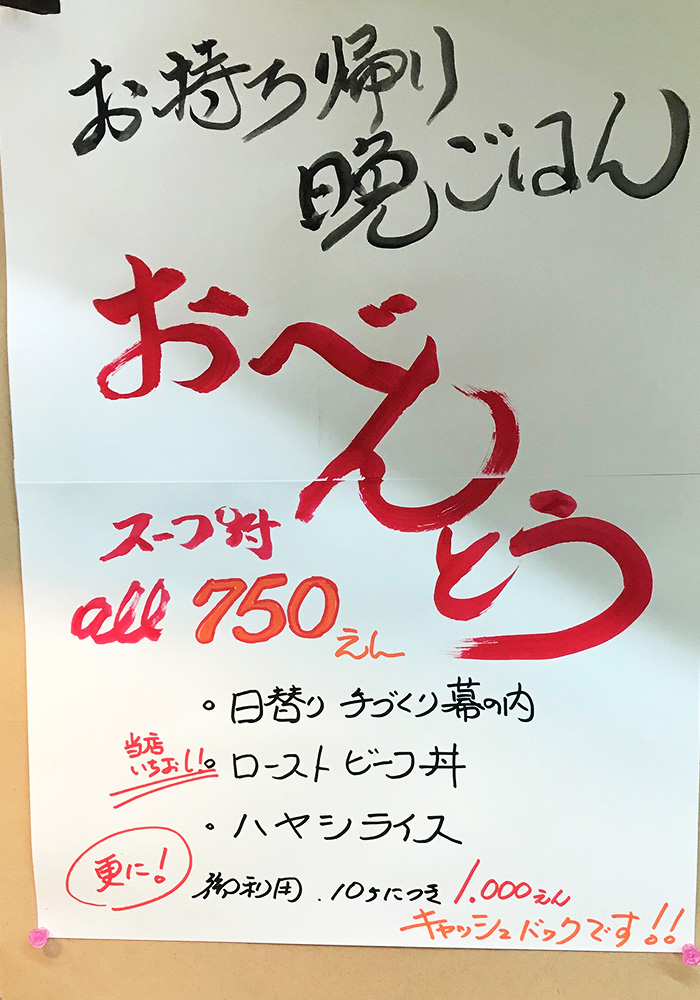 お持ち帰り
晩ごはん
おべんとう
スープ付
all 750えん
。日替り 手づくり幕の内
当店
いちおし!!
。ローストビーフ丼
・ハヤシライス
更に!
御利用.10ヶにつき 1.000えん
キャッシュバックです!!